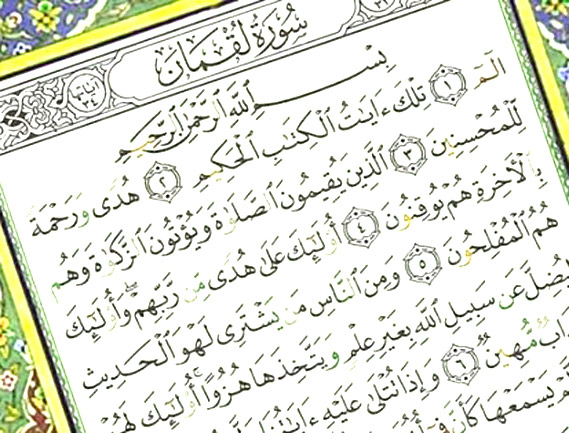 سُورَةُ لُقْمَانَ
بِسْمِ ٱللَّهِ ٱلرَّحْمَٰنِ ٱلرَّحِيمِ
الٓمٓ ١ تِلْكَ ءَايَٰتُ ٱلْكِتَٰبِ ٱلْحَكِيمِ ٢ هُدًى وَرَحْمَةً
لِّلْمُحْسِنِينَ ٣ ٱلَّذِينَ يُقِيمُونَ ٱلصَّلَوٰةَ وَيُؤْتُونَ ٱلزَّكَوٰةَ وَهُم
بِٱلْءَاخِرَةِ هُمْ يُوقِنُونَ ٤ أُو۟لَٰٓئِكَ عَلَىٰ هُدًى مِّن رَّبِّهِمْ ۖ وَأُو۟لَٰٓئِكَ
هُمُ ٱلْمُفْلِحُونَ ٥ وَمِنَ ٱلنَّاسِ مَن يَشْتَرِى لَهْوَ ٱلْحَدِيثِ
يُضِلَّ عَن سَبِيلِ ٱللَّهِ بِغَيْرِ عِلْمٍ وَيَتَّخِذَهَا هُزُوًا ۚ أُو۟لَٰٓئِكَ لَهُمْ
اب مُّهِينٌ ٦ وَإِذَا تُتْلَىٰ عَلَيْهِ ءَايَٰتُنَا
لَّمْ يَسْمَعْهَا كَأَنَّ فِىٓ